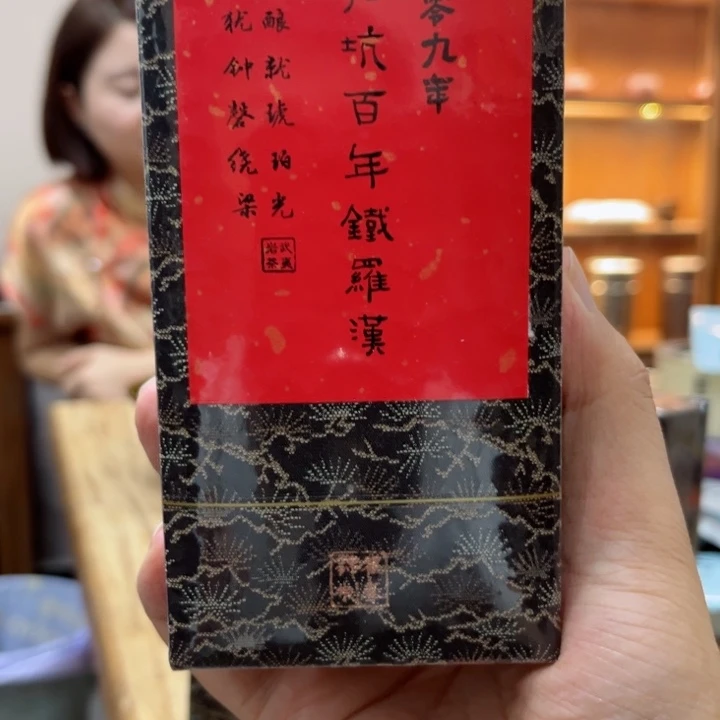 零九年
坑百年鐵羅漢
酿就琥珀光
犹钟磬绕梁
武夷
岩茶